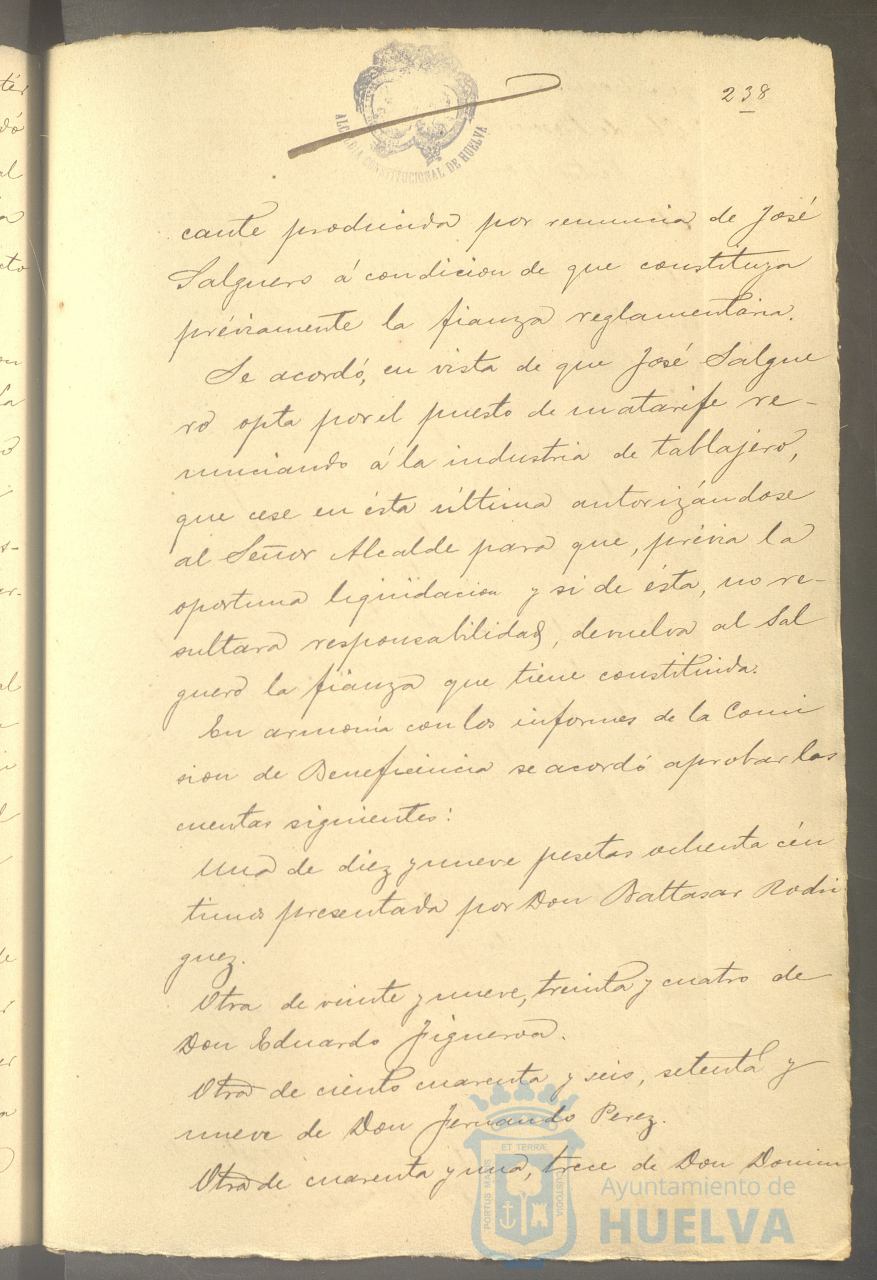 238
ALCALDIA CONSTITUCIONAL DE HUELVA
cante producida por renuncia de José
Salguero á condicion de que constituya
préviamente la fianza reglamentaria.
Se acordó, en vista de que José Salgue
ro opta por el puesto de matarife re-
nunciando á la industria de tablajero,
que cese en ésta última autorizándose
al Señor Alcalde para que, prévia la
oportuna liquidacion y si de ésta, no re-
sultara responsabilidad, devuelva al Sal
guero la fianza que tiene constituida.
En armonia con los informes de la Comi
sion de Beneficencia se acordó aprobar las
cuentas siguientes:
Una de diez y nueve pesetas ochenta cén
timos presentada por Don Baltasar Rodri
guez.
Otra de veinte y nueve, treinta y cuatro de
Don Eduardo Figueroa.
Otra de ciento cuarenta y seis, setenta y
nueve de Don Fernando Perez.
Otra de cuarenta y una, trece de Don Domin
PORTUS MARIS ET TERRÆ CUSTODIA
Ayuntamiento de
HUELVA